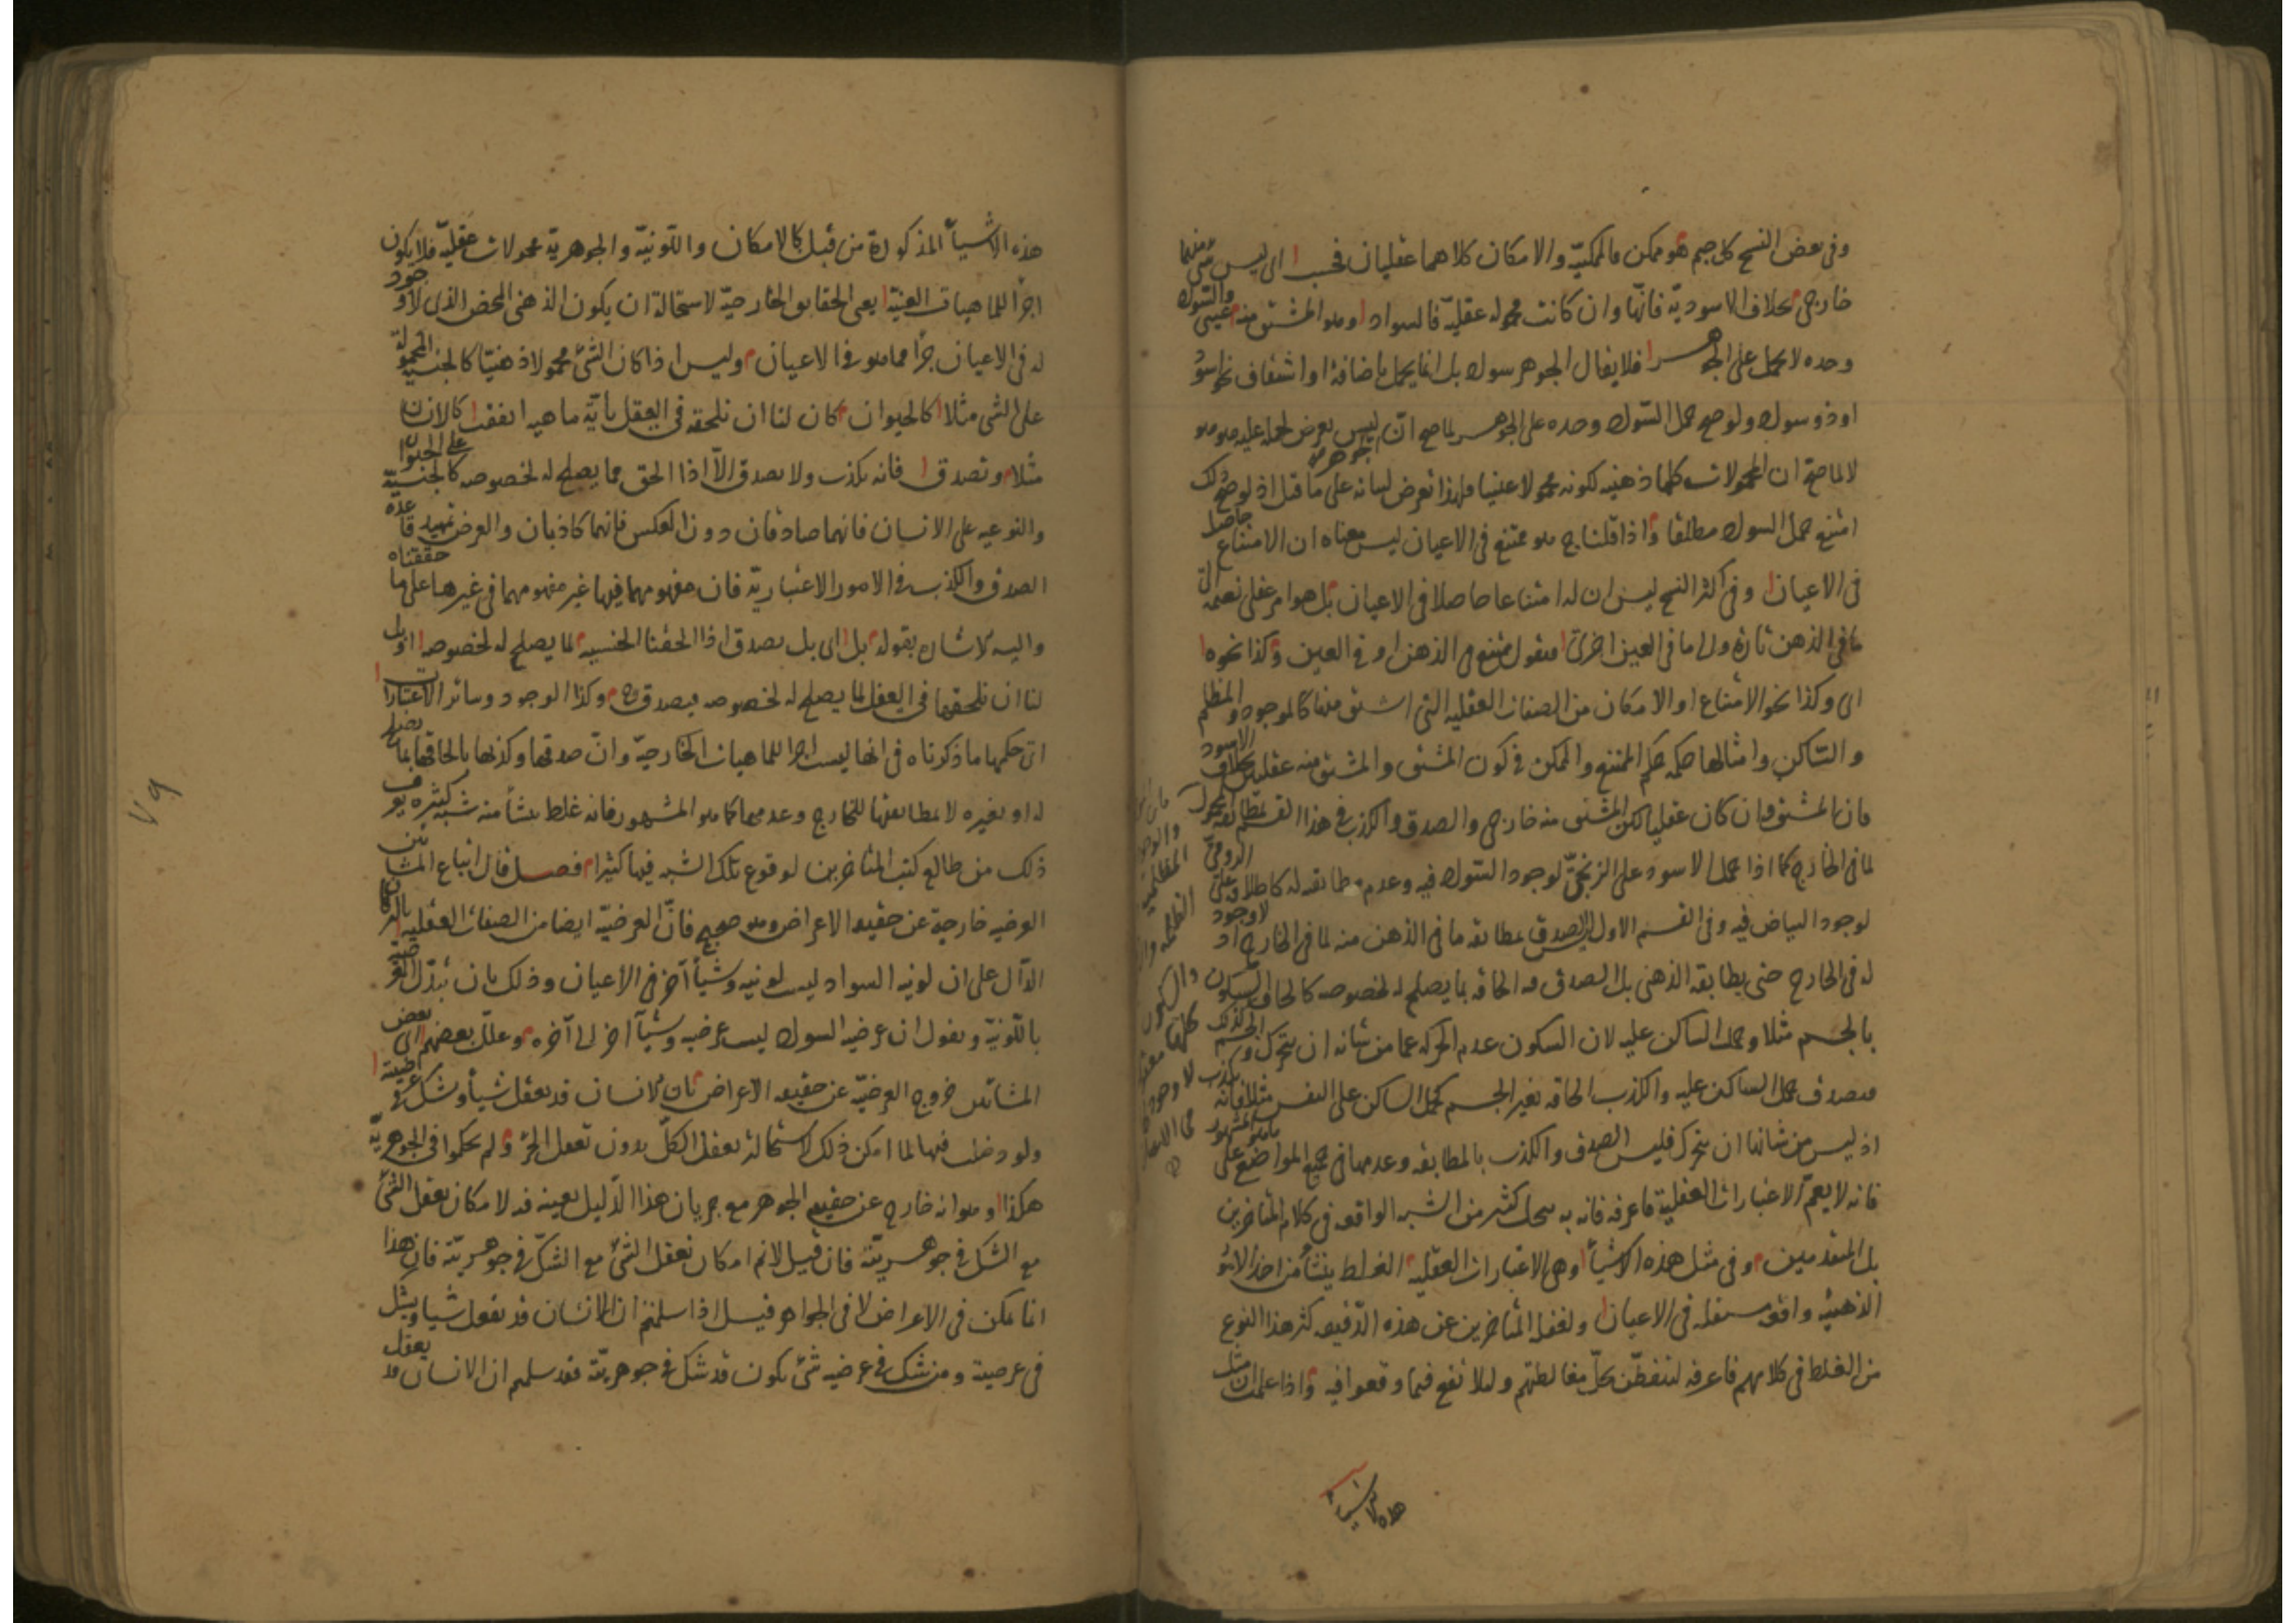 وفى بعض النسخ كل جسم هو ممكن فالممكنيّة والامكان كلاهما عقليان فحسب اى ليس شئ منهما
خارجى بخلاف الاسوديّة فانّها وان كانت محمولة عقليّة فالسواد وهو المشتق منه عينى والسواد
وحده لا يحمل على الجوهر فلا يقال الجوهر سواد بل انما يحمل باضافة او اشتقاق نحو اسود
او ذو سواد ولو صح حمل السواد وحده على الجوهر لما صح انّه ليس بعرض لحمله عليه هو هو
لا لما صح ان المحمولات كلها ذهنية ككونه محمولا عينيا فلهذا تعرض لبيانه على ما قيل اذ لو صح ذلك
امتنع حمل السواد مطلقا واذا قلنا ج هو ممتنع فى الاعيان ليس معناه ان الامتناع حاصل
فى الاعيان وفى اكثر النسخ ليس ان له امتناعا حاصلا فى الاعيان بل هو امر عقلى نضمه الى
ما فى الذهن تارة والى ما فى العين اخرى فنقول ممتنع فى الذهن او فى العين وكذا نحوه
اى وكذا نحو الامتناع او الامكان من الصفات العقلية التى اشتق منها كالموجود والمظلم
والساكن وامثالها حكمه حكم الممتنع والممكن فى كون المشتق والمشتق منه عقليين بخلاف الاسود
فان المشتق وان كان عقليا لكن المشتق منه خارجى والصدق والكذب فى هذا القسم لمطابقة المحمول
لما فى الخارج كما اذا حمل الاسود على الزنجىّ لوجود السواد فيه وعدم مطابقته له كاطلاقه على الرومىّ
لوجود البياض فيه وفى القسم الاول ليس الصدق بمطابقة ما فى الذهن منه لما فى الخارج اذ لا وجود
له فى الخارج حتى يطابقه الذهنى بل الصدق فيه الحاقه بما يصلح له لخصوصه كالحاق السكون
بالجسم مثلا وحمل الساكن عليه لان السكون عدم الحركة عما من شانه ان يتحرك والجسم كذلك
فيصدق حمل الساكن عليه والكذب الحاقه بغير الجسم كحمل الساكن على النفس مثلا فانه يكذب
اذ ليس من شانها ان يتحرك فليس الصدق والكذب بالمطابقة وعدمها فى جميع المواضع على ما هو المشهور
فانه لا يعمّ الاعتبارات العقلية فاعرفه فانه به ينحل كثير من الشبه الواقعة فى كلام المتاخرين
بل المتقدمين وفى مثل هذه الاشياء وهى الاعتبارات العقلية الغلط ينشأ من اخذ الامور
الذهنية واقعة مستقلة فى الاعيان ولغفلة المتأخرين عن هذه الدّقيقة كثر هذا النوع
من الغلط فى كلامهم فاعرفه لتتفطّن بحلّ مغالطتهم ولئلا تقع فيما وقعوا فيه واذا علمت ان مثل
هذه الاشياء
هذه الاشياء المذكورة من قبل كالامكان واللّونيّة والجوهريّة محمولات عقليّة فلا يكون
اجزاء للماهيات العينيّة يعنى الحقايق الخارجيّة لاستحالة ان يكون الذهنى المحض الذى لا وجود
له فى الاعيان جزأ مما هو فى الاعيان وليس اذا كان الشئ محمولا ذهنيّا كالجنسية المحمولة
على الشئ مثلا كالحيوان كان لنا ان نلحقه فى العقل بأيّة ماهية اتفقت كالانسان
مثلا وتصدق فانه يكذب ولا يصدق الاّ اذا الحق بما يصلح له لخصوصه كالجنسيّة على الحيوان
والنوعية على الانسان فانهما صادقان دون العكس فانهما كاذبان والغرض تمهيد قاعدة
الصدق والكذب فى الامور الاعتباريّة فان مفهومهما فيها غير مفهومهما فى غيرها على ما حققناه
واليه الاشارة بقوله بل اى بل يصدق اذا الحقنا الجنسية لما يصلح له لخصوصه او بل
لنا ان نلحقها فى العقل لما يصلح له لخصوصه فيصدق ح وكذا الوجود وسائر الاعتبارات
اى حكمها ما ذكرناه فى انها ليست اجزاء للماهيات الخارجيّة وانّ صدقها وكذبها بالحاقها بما يصلح
له او بغيره لا بمطابقتها للخارج وعدمها كما هو المشهور فانه غلط ينشأ منه شبه كثيرة يعرف
ذلك من طالع كتب المتاخرين لوقوع تلك الشبه فيها كثيرا فصل قال اتباع المشائين
العرضية خارجة عن حقيقة الاعراض وهو صحيح فانّ العرضيّة ايضا من الصفات العقلية بالبرهان
الدّال على ان لونية السواد ليست لونية وشيأ آخر فى الاعيان وذلك بان نبدّل العرضيّة
باللّونيّة ونقول ان عرضية السواد ليست عرضية وشيأ اخر الى آخره وعلّل بعضهم اى بعض
المشائين خروج العرضيّة عن حقيقة الاعراض بان الانسان قد يعقل شيأ ويشك فى عرضيته
ولو دخلت فيها لما امكن ذلك لاستحالة تعقل الكلّ بدون تعقل الجزء ولم يحكموا فى الجوهريّة
هكذا وهو انه خارج عن حقيقة الجوهر مع جريان هذا الدّليل بعينه فيه لامكان تعقل الشئ
مع الشك فى جوهريّته فان قيل لا نم امكان تعقل الشئ مع الشكّ فى جوهريّته فان هذا
انما يمكن فى الاعراض لا فى الجواهر قيل اذا سلمتم ان الانسان قد يعقل شيا ويشك
فى عرضيته ومن شك فى عرضية شئ يكون قد شك فى جوهريّته فقد سلمتم ان الانسان قد يعقل
٧٩